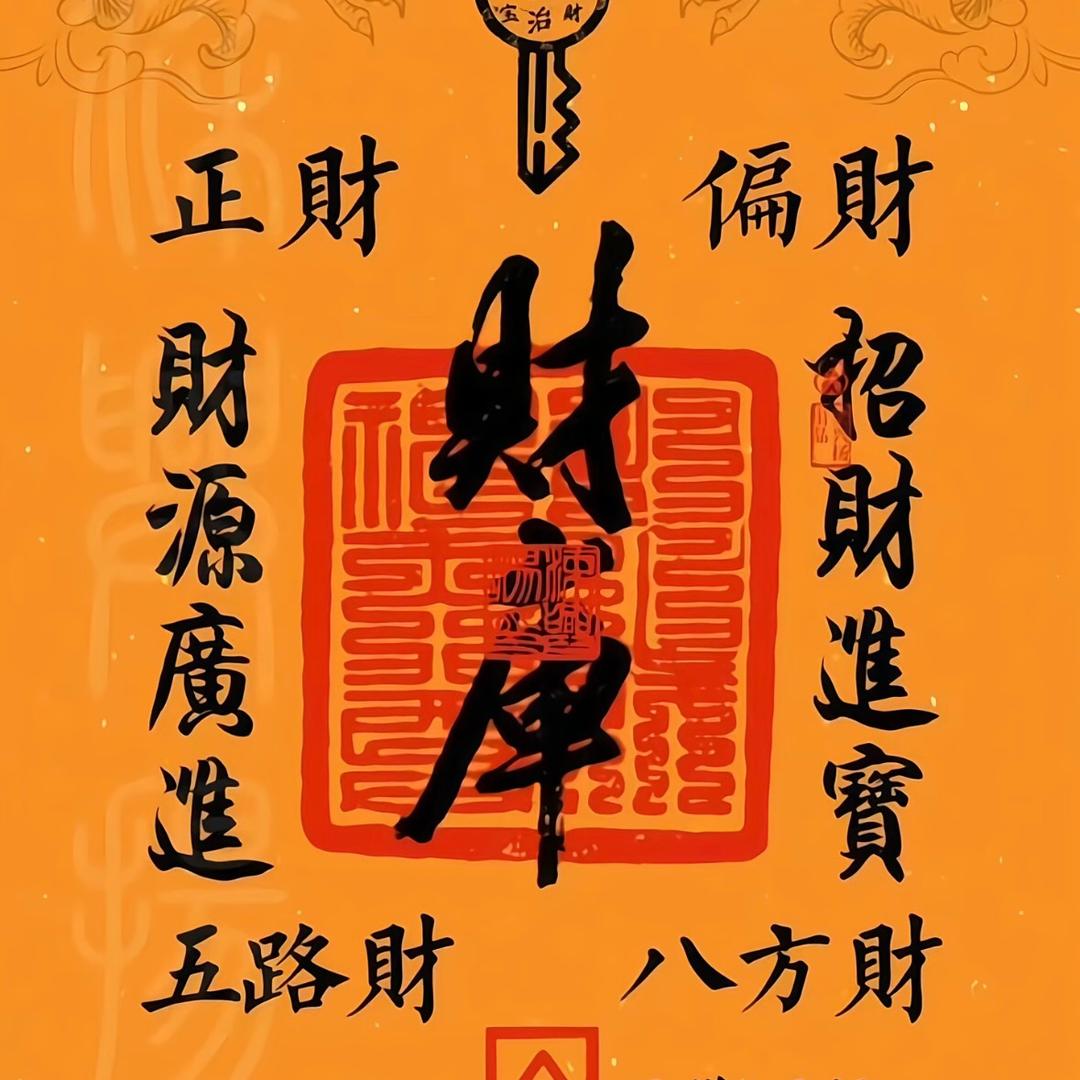 正財
偏財
財庫
財源廣進
招財進寶
五路財
八方財